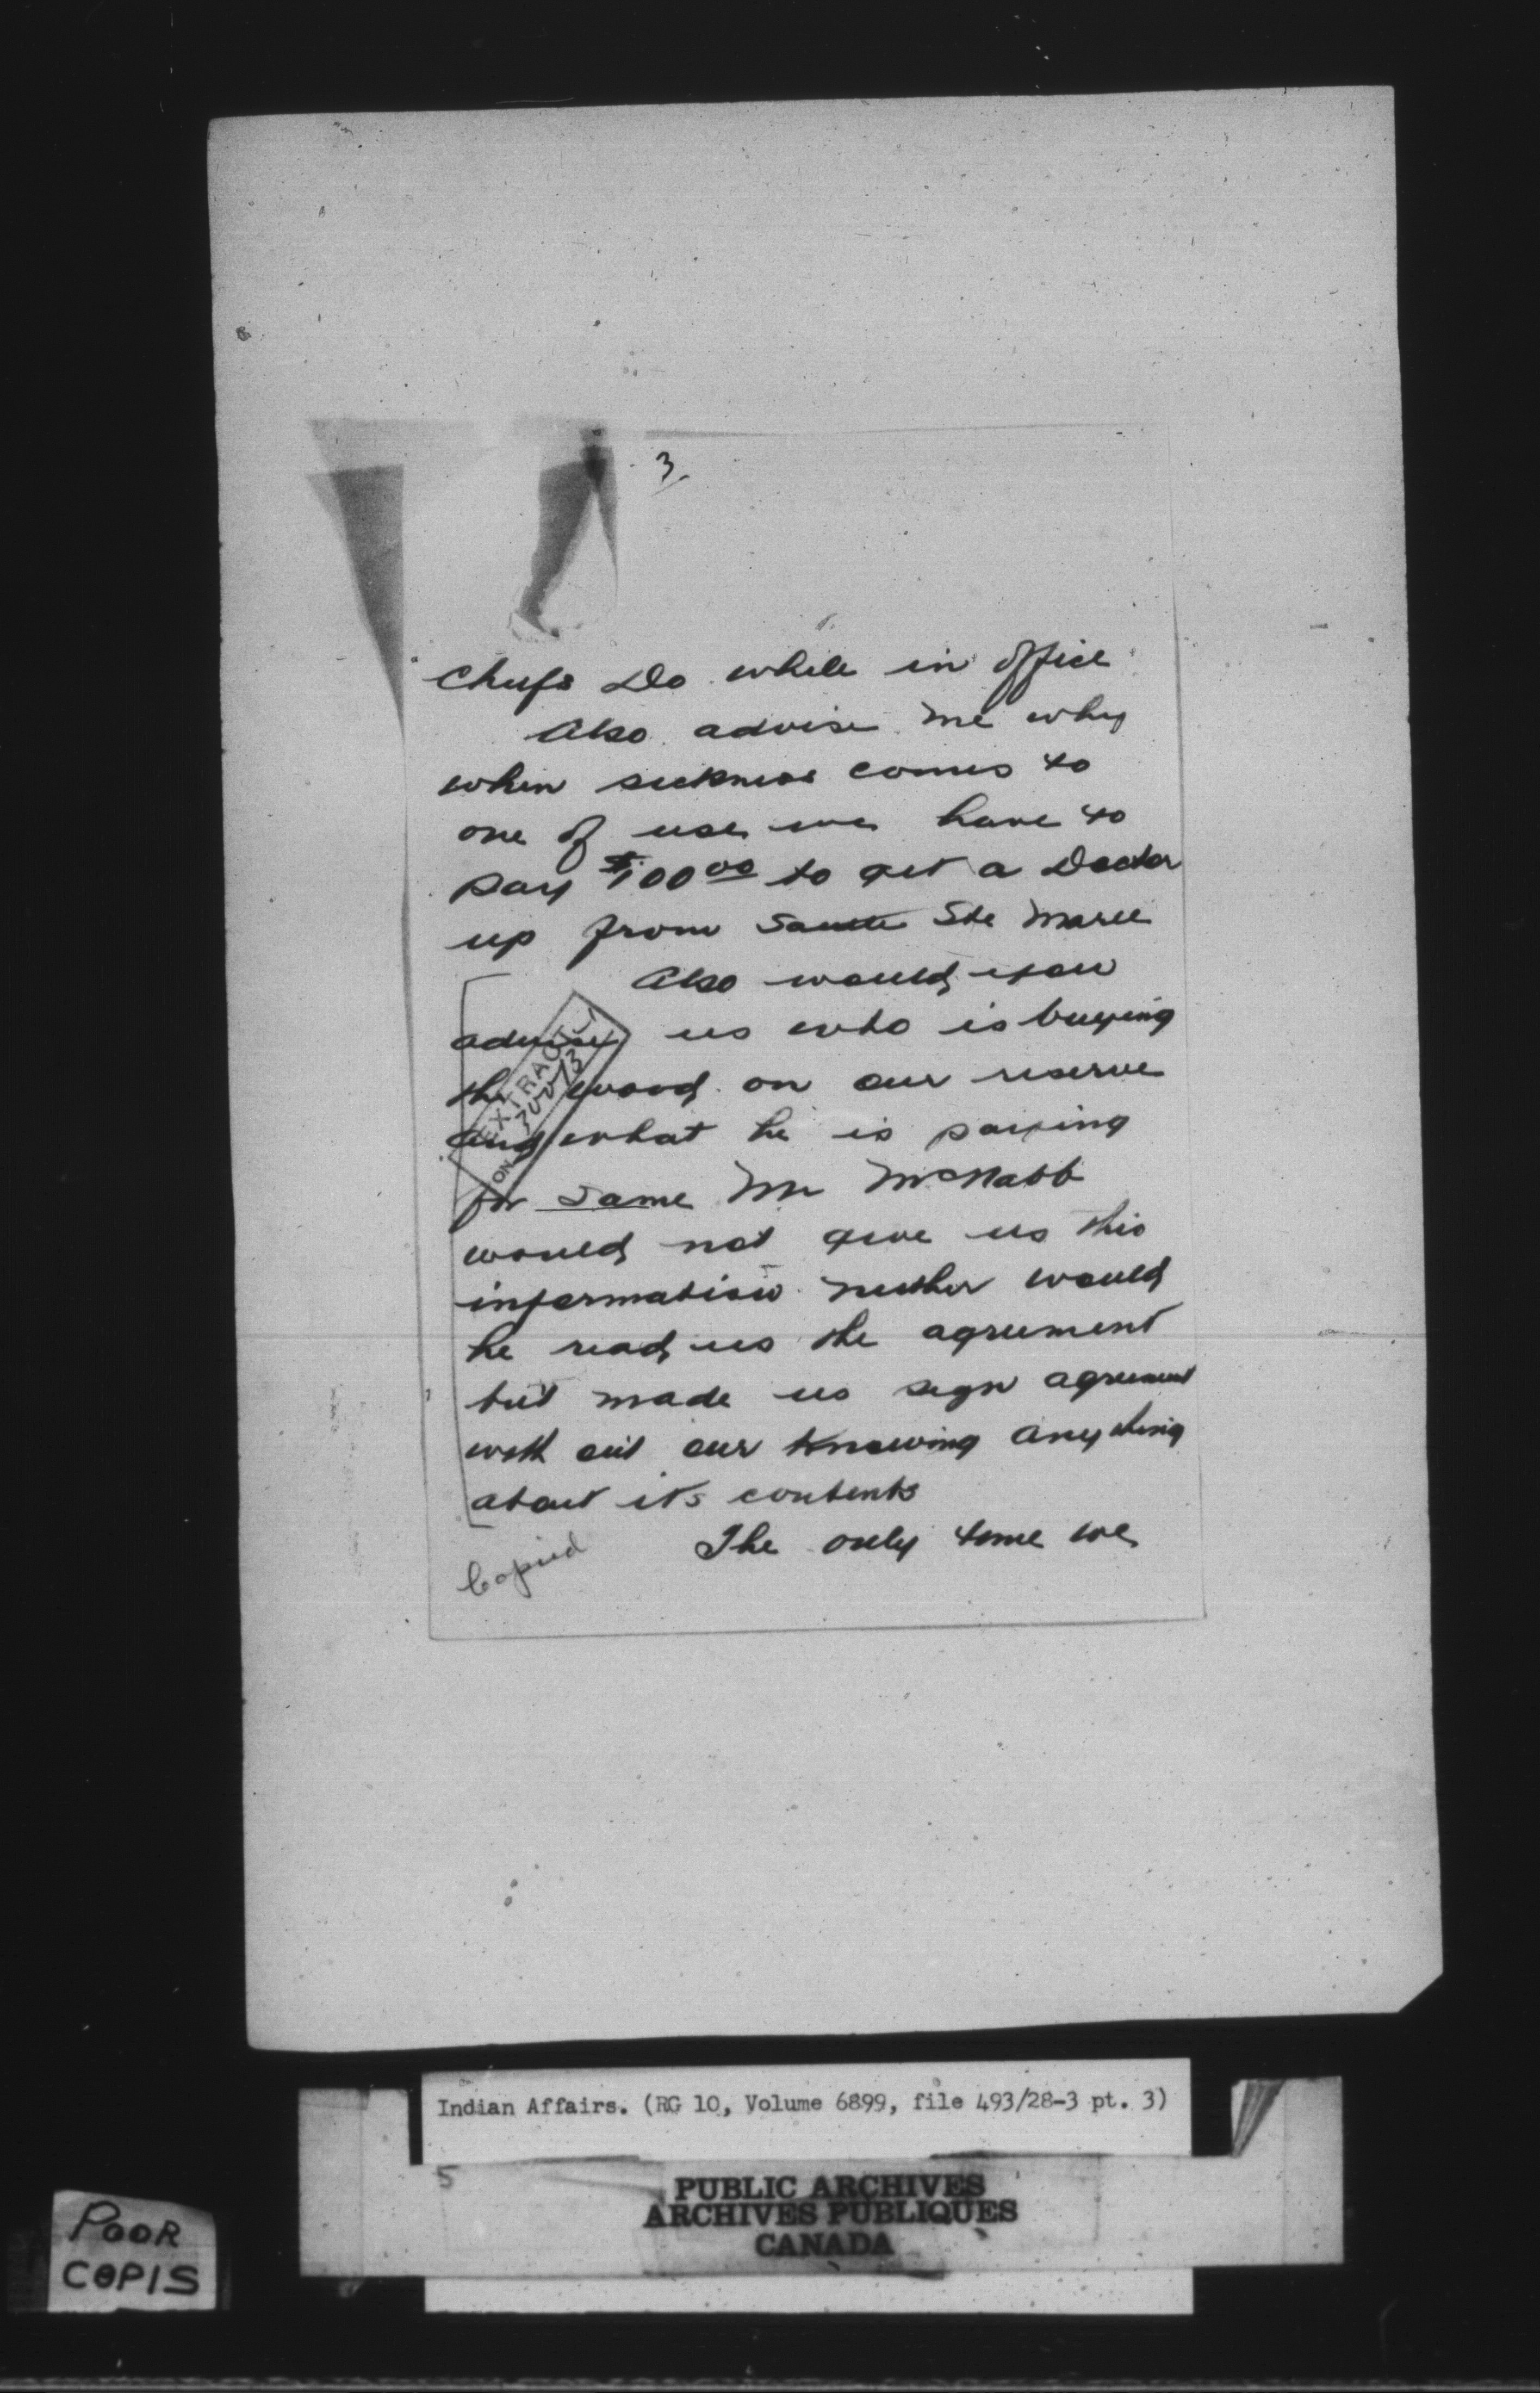 3.
Chiefs Do while in office
Also advise me why
when sickness comes to
one of use we have to
pay $100.00 to get a Doctor
up from Saulte Ste Marie
Also would you
advise us who is buying
the wood on our reserve
and what he is paying
for same Mr McNabb
would not give us this
information neither would
he read us the agreement
but made us sign agreement
with out our knowing anything
about its contents
The only time we
Copied
EXTRACT
ON
Indian Affairs. (RG 10, Volume 6899, file 493/28-3 pt. 3)
5
PUBLIC ARCHIVES
ARCHIVES PUBLIQUES
CANADA
POOR
COPIS